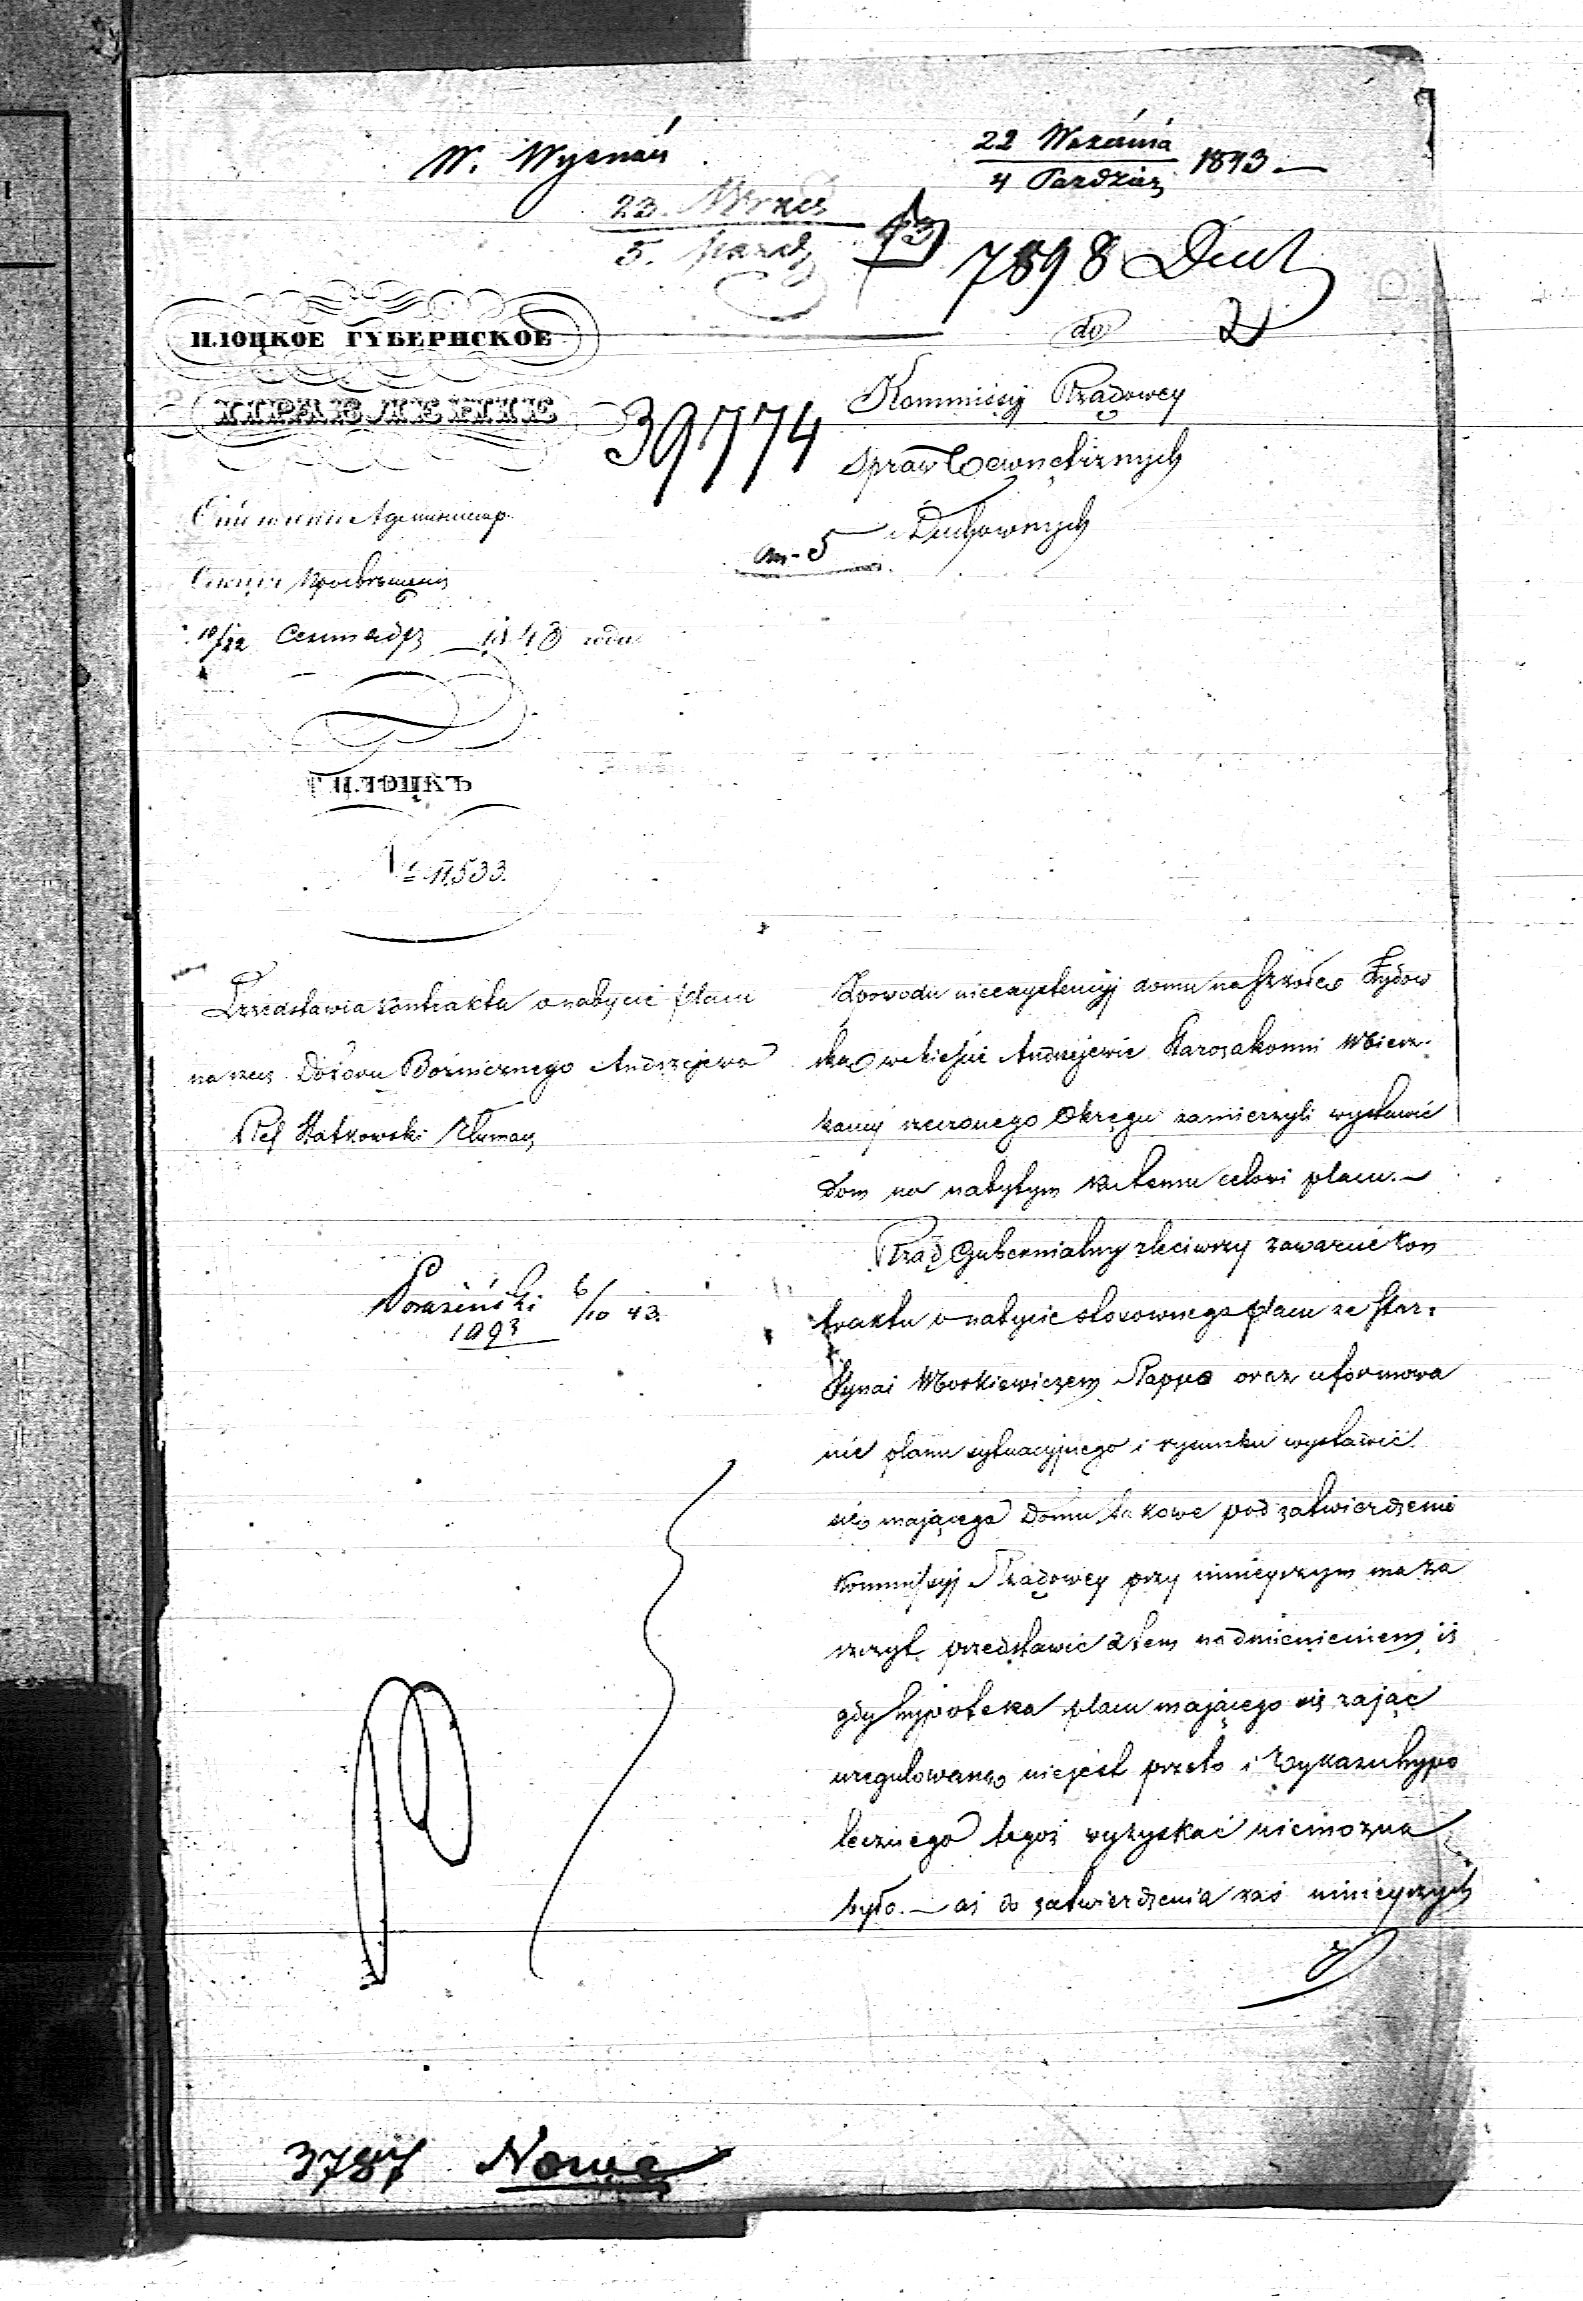 W. Wyznań
22 Września
4 Paździer 1843
23. Wrześ
5. Paźdz 43
7898 Duch
2
ПЛОЦКОЕ ГУБЕРНСКОЕ
ПРАВЛЕНІЕ
39774
do
Kommissyi Rządowey
Spraw Wewnętrznych
Duchownych
5
10/22 Сентября 1843 года
Г. ПЛОЦКЪ
№ 11533.
Przedstawia kontrakta o nabycie placu
na rzecz Dozoru Bóżnicznego Andrzejewa
Ref Statkowski Tłumacz
6/10 43.
1093
Z powodu nieexystencyi domu na szkołę Żydow
ską w mieście Andrzejewie Starozakonni Miesz-
kańcy rzeczonego Okręgu zamierzyli wystawić
Dom na nabytym ku temu celowi placu.—
Rząd Gubernialny zleciwszy zawarcie kon
traktu o nabycie stosownego placu ze Star.
Synai Moskiewiczem Rappe oraz uformowa
nie planu sytuacyjnego i rysunku wystawić
się mającego Domu takowe pod zatwierdzenie
Kommissyj Rządowey przy ninieyszym ma za
szczyt przedstawić z tem nadmienieniem iż
gdy hypoteka placu mającego się zająć
uregulowaną niejest przeto i Wykazu hypo
tecznego tegoż wyzyskać niemożna
było.— aż do zatwierdzenia zaś ninieyszych
3787 Nowe